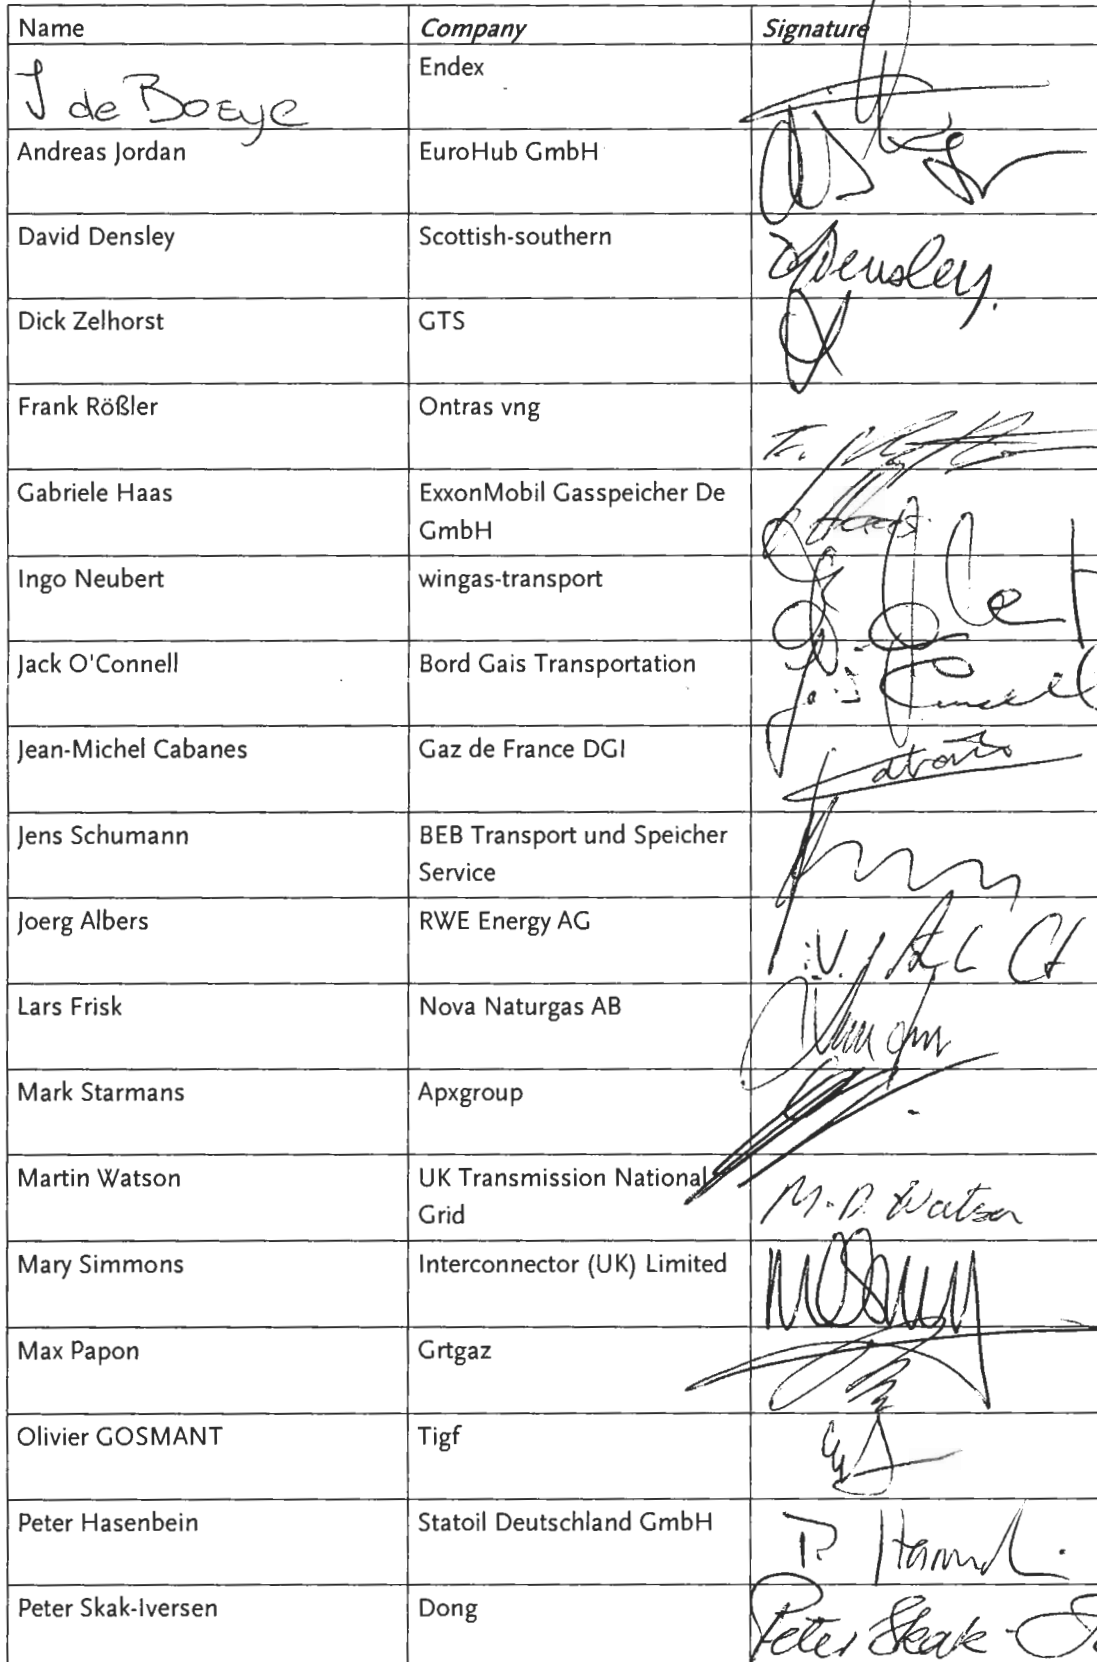 Name Company Signature
J de Boeye Endex
Andreas Jordan EuroHub GmbH
David Densley Scottish-southern Densley.
Dick Zelhorst GTS
Frank Rößler Ontras vng
Gabriele Haas ExxonMobil Gasspeicher De Haas
GmbH
Ingo Neubert wingas-transport
Jack O'Connell Bord Gais Transportation
Jean-Michel Cabanes Gaz de France DGI
Jens Schumann BEB Transport und Speicher
Service
Joerg Albers RWE Energy AG i.V.
Lars Frisk Nova Naturgas AB
Mark Starmans Apxgroup
Martin Watson UK Transmission National M.D. Watson
Grid
Mary Simmons Interconnector (UK) Limited
Max Papon Grtgaz
Olivier GOSMANT Tigf
Peter Hasenbein Statoil Deutschland GmbH P.
Peter Skak-Iversen Dong Peter Skak-